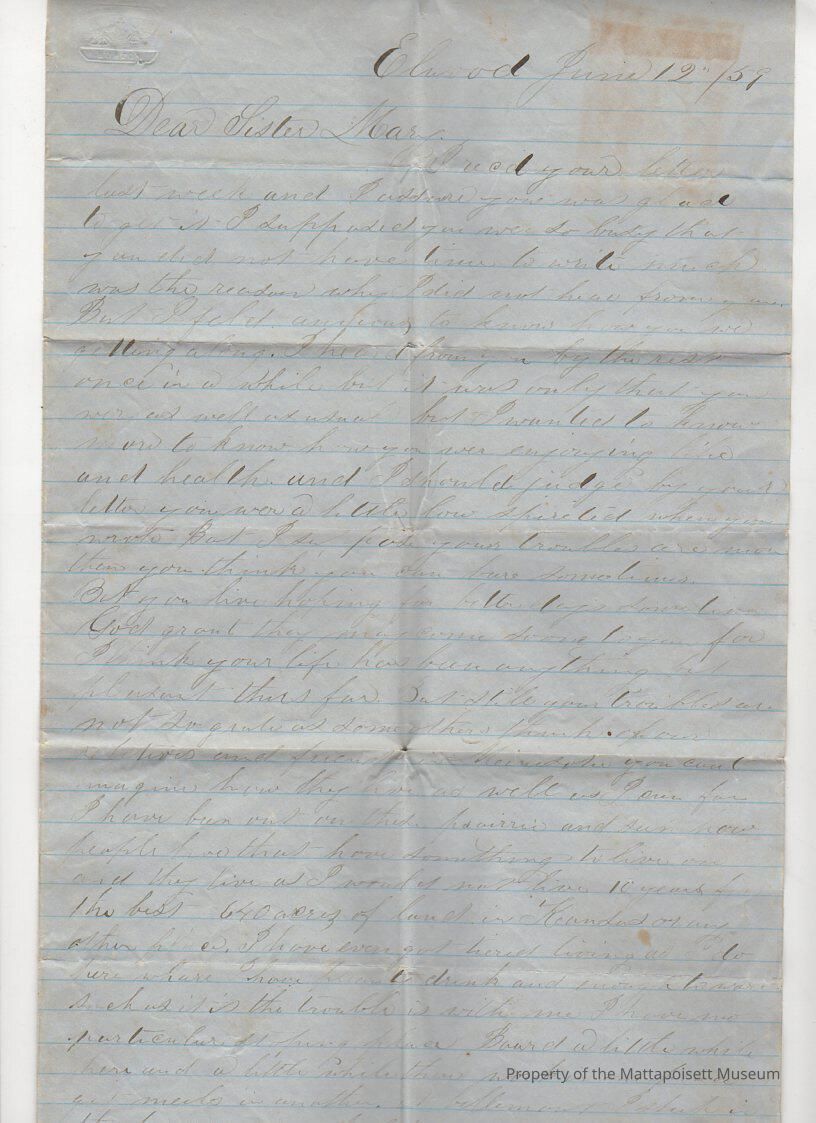 Elwood June 12" /59
Dear Sister Mary
I recd your letter
last week and I assure you was glad
to get it I supposed you wer so busy that
you did not have time to write much
was the reason why I did not hear from you
But I felt anxious to know how you wer
getting along. I heard from you by the rest
once in a while but it was only that you
wer as well as usual but I wanted to know
more to know how you wer enjoying life
and health. and I should judge by your
letter you wer a little low spirited when you
wrote But I supose your troubles are more
then you think you can bare sometimes.
But you live hoping for better days
God grant they may come soone to you for
I think your life has been anything but
pleasant thus far. but still your troubles are
not so grate as some others think of our
relatives and friends in you cant
imagine how they live as well as I can for
I have ben out on these prairrie and seen how
people live that have something to live on
and they live as I would not live 10 years for
the best 640 acres of land in Kansas or any
other place. I have even got tiered living as I do
here where I have to drink and enough to ware
such as it is the trouble is with me I have no
particular stoping place Board a little while
here and a little while there
get meals in another.
Property of the Mattapoisett Museum